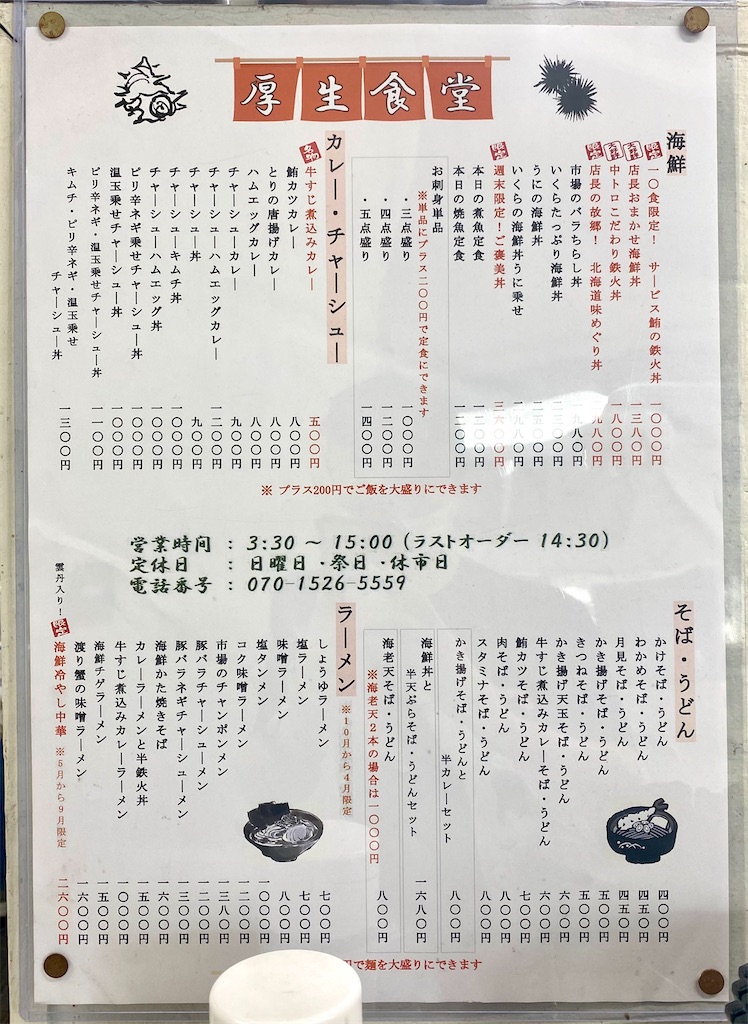 厚生食堂
海鮮
限定 一〇食限定！ サービス鮪の鉄火丼 一〇〇〇円
店長おまかせ海鮮丼 一三八〇円
中トロこだわり鉄火丼 一八〇〇円
限定 店長の故郷！ 北海道味めぐり丼 九八〇円
市場のバラちらし丼 八〇円
いくらたっぷり海鮮丼 〇〇円
うにの海鮮丼 〇〇円
いくらの海鮮丼うに乗せ 八〇円
限定 週末限定！ご褒美丼 六〇〇円
本日の煮魚定食 〇〇円
本日の焼魚定食 一二〇〇円
お刺身単品
※単品にプラス二〇〇円で定食にできます
・三点盛り 一〇〇〇円
・四点盛り 一二〇〇円
・五点盛り 一四〇〇円
カレー・チャーシュー
名物 牛すじ煮込みカレー 五〇〇円
鮪カツカレー 八〇〇円
とりの唐揚げカレー 八〇〇円
ハムエッグカレー 八〇〇円
チャーシューカレー 九〇〇円
チャーシューハムエッグカレー 一二〇〇円
チャーシュー丼 九〇〇円
チャーシューキムチ丼 一〇〇〇円
チャーシューハムエッグ丼 一二〇〇円
ピリ辛ネギ乗せチャーシュー丼 一〇〇〇円
温玉乗せチャーシュー丼 一〇〇〇円
ピリ辛ネギ・温玉乗せチャーシュー丼 一一〇〇円
キムチ・ピリ辛ネギ・温玉乗せ
チャーシュー丼 一三〇〇円
※ プラス200円でご飯を大盛りにできます
営業時間 ： 3:30 ～ 15:00 (ラストオーダー 14:30)
定休日 ： 日曜日・祭日・休市日
電話番号 ： 070-1526-5559
そば・うどん
かけそば・うどん 四〇〇円
わかめそば・うどん 四五〇円
月見そば・うどん 四五〇円
かき揚げそば・うどん 五〇〇円
きつねそば・うどん 五〇〇円
かき揚げ天玉そば・うどん 六〇〇円
牛すじ煮込みカレーそば・うどん 六〇〇円
鮪カツそば・うどん 七〇〇円
肉そば・うどん 八〇〇円
スタミナそば・うどん 八〇〇円
かき揚げそば・うどんと
半カレーセット 八〇〇円
海鮮丼と
半天ぷらそば・うどんセット 一六八〇円
海老天そば・うどん 八〇〇円
※海老天２本の場合は一〇〇〇円
ラーメン ※10月から4月限定
しょうゆラーメン 七〇〇円
塩ラーメン 七〇〇円
味噌ラーメン 八〇〇円
塩タンメン 一〇〇〇円
コク味噌ラーメン 一二〇〇円
市場のチャンポンメン 一三八〇円
豚バラチャーシューメン 一二〇〇円
豚バラネギチャーシューメン 一三〇〇円
海鮮かた焼きそば 一六〇〇円
カレーラーメンと半鉄火丼 一五〇〇円
牛すじ煮込みカレーラーメン 一〇〇〇円
海鮮チゲラーメン 一五〇〇円
渡り蟹の味噌ラーメン 一六〇〇円
雲丹入り！ 限定 海鮮冷やし中華 ※5月から9月限定 二六〇〇円
円で麺を大盛りにできます